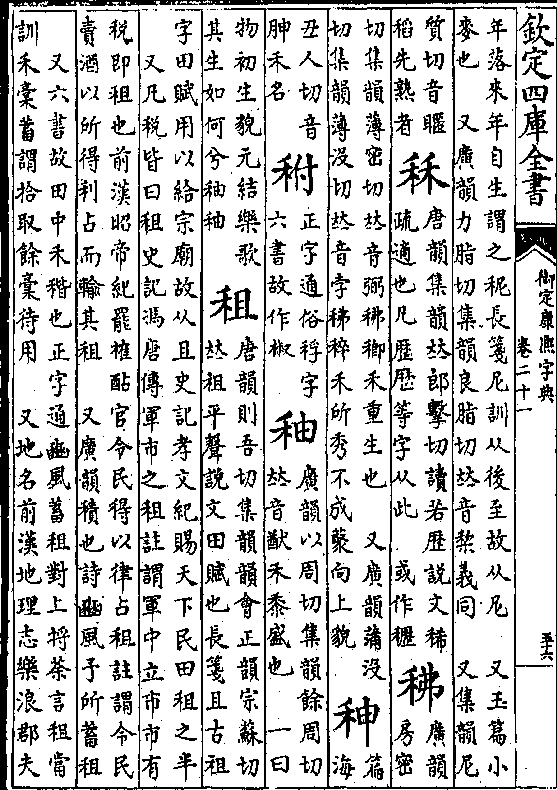 欽定四庫全書
御定康熙字典
卷二十一
五十六
年落來年自生謂之秜長箋尼訓从後至故从尼　又玉篇小
麥也　又廣韻力脂切集韻良脂切𠀤音棃義同　又集韻尼
質切音暱
稻先熟者
秝
唐韻集韻𠀤郎擊切讀若歴説文稀
疏適也凡歴歷等字从此　或作䅻
䄶
廣韻
房密
切集韻薄密切𠀤音弼䄶禾重生也　又廣韻蒲没
切集韻薄没切𠀤音孛䄶稡禾所秀不成藂向上貌
篇
海
丑人切音
胂禾名
正字通俗稃字
六書故作椒
秞
廣韻以周切集韻餘周切
𠀤音猷禾黍盛也　一曰
物初生貌元結樂歌
其生如何兮秞秞
租
唐韻則吾切集韻韻會正韻宗蘇切
𠀤祖平聲說文田賦也長箋且古祖
字田賦用以給宗廟故从且史記孝文紀賜天下民田租之半
又凡税皆曰租史記馮唐傳軍市之租註謂軍中立市市有
税即租也前漢昭帝紀罷榷酤官令民得以律占租註謂令民
賣酒以所得利占而輸其租　又廣韻積也詩豳風予所蓄租
又六書故田中禾稭也正字通豳風蓄租對上捋荼言租當
訓禾稾蓄謂拾取餘稾待用　又地名前漢地理志樂浪郡夫